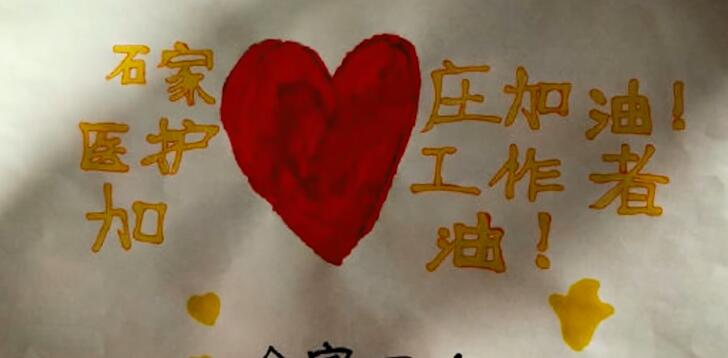 石家庄加油！
医护工作者
加油！